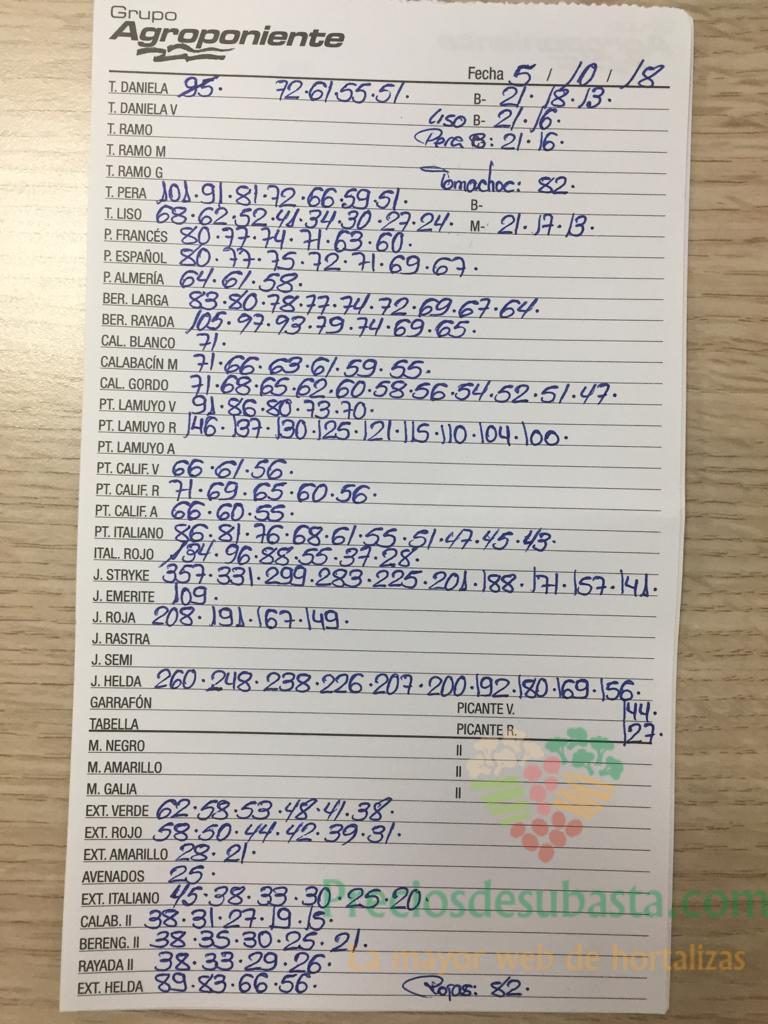 Grupo
Agroponiente
Fecha 5 / 10 / 18
T. DANELA 95. 72.61.55.51. B- 21.18.13.
T. DANIELA V Liso B- 21.16.
T. RAMO Pera B: 21.16.
T. RAMO M
T. RAMO G Tomachoc: 82.
T. PERA 101.91.81.72.66.59.51. B-
T. LISO 68.62.52.41.34.30.27.24. M- 21.17.13.
P. FRANCÉS 80.77.74.71.63.60.
P. ESPAÑOL 80.77.75.72.71.69.67.
P. ALMERÍA 64.61.58.
BER. LARGA 83.80.78.77.74.72.69.67.64.
BER. RAYADA 105.97.93.79.74.69.65.
CAL. BLANCO 71.
CALABACÍN M 71.66.63.61.59.55.
CAL. GORDO 71.68.65.62.60.58.56.54.52.51.47.
PT. LAMUYO V 91.86.80.73.70.
PT. LAMUYO R 146.137.130.125.121.115.110.104.100.
PT. LAMUYO A
PT. CALIF. V 66.61.56.
PT. CALIF. R 71.69.65.60.56.
PT. CALIF. A 66.60.55.
PT. ITALIANO 86.81.76.68.61.55.51.47.45.43.
ITAL. ROJO 134.96.88.55.37.28.
J. STRYKE 357.331.299.283.225.201.188.171.157.141.
J. EMERITE 109.
J. ROJA 208.191.167.149.
J. RASTRA
J. SEMI
J. HELDA 260.248.238.226.207.200.192.180.169.156.
GARRAFÓN PICANTE V. 144.
TABELLA PICANTE R. 127.
M. NEGRO II
M. AMARILLO II
M. GALIA II
EXT. VERDE 62.58.53.48.41.38.
EXT. ROJO 58.50.44.42.39.31.
EXT. AMARILLO 28.21.
AVENADOS 25.
EXT. ITALIANO 45.38.33.30.25.20.
CALAB. II 38.31.27.19.15.
BERENG. II 38.35.30.25.21.
RAYADA II 38.33.29.26.
EXT. HELDA 89.83.66.56. Rojas: 82.
Preciosdesubasta.com
La mayor web de hortalizas